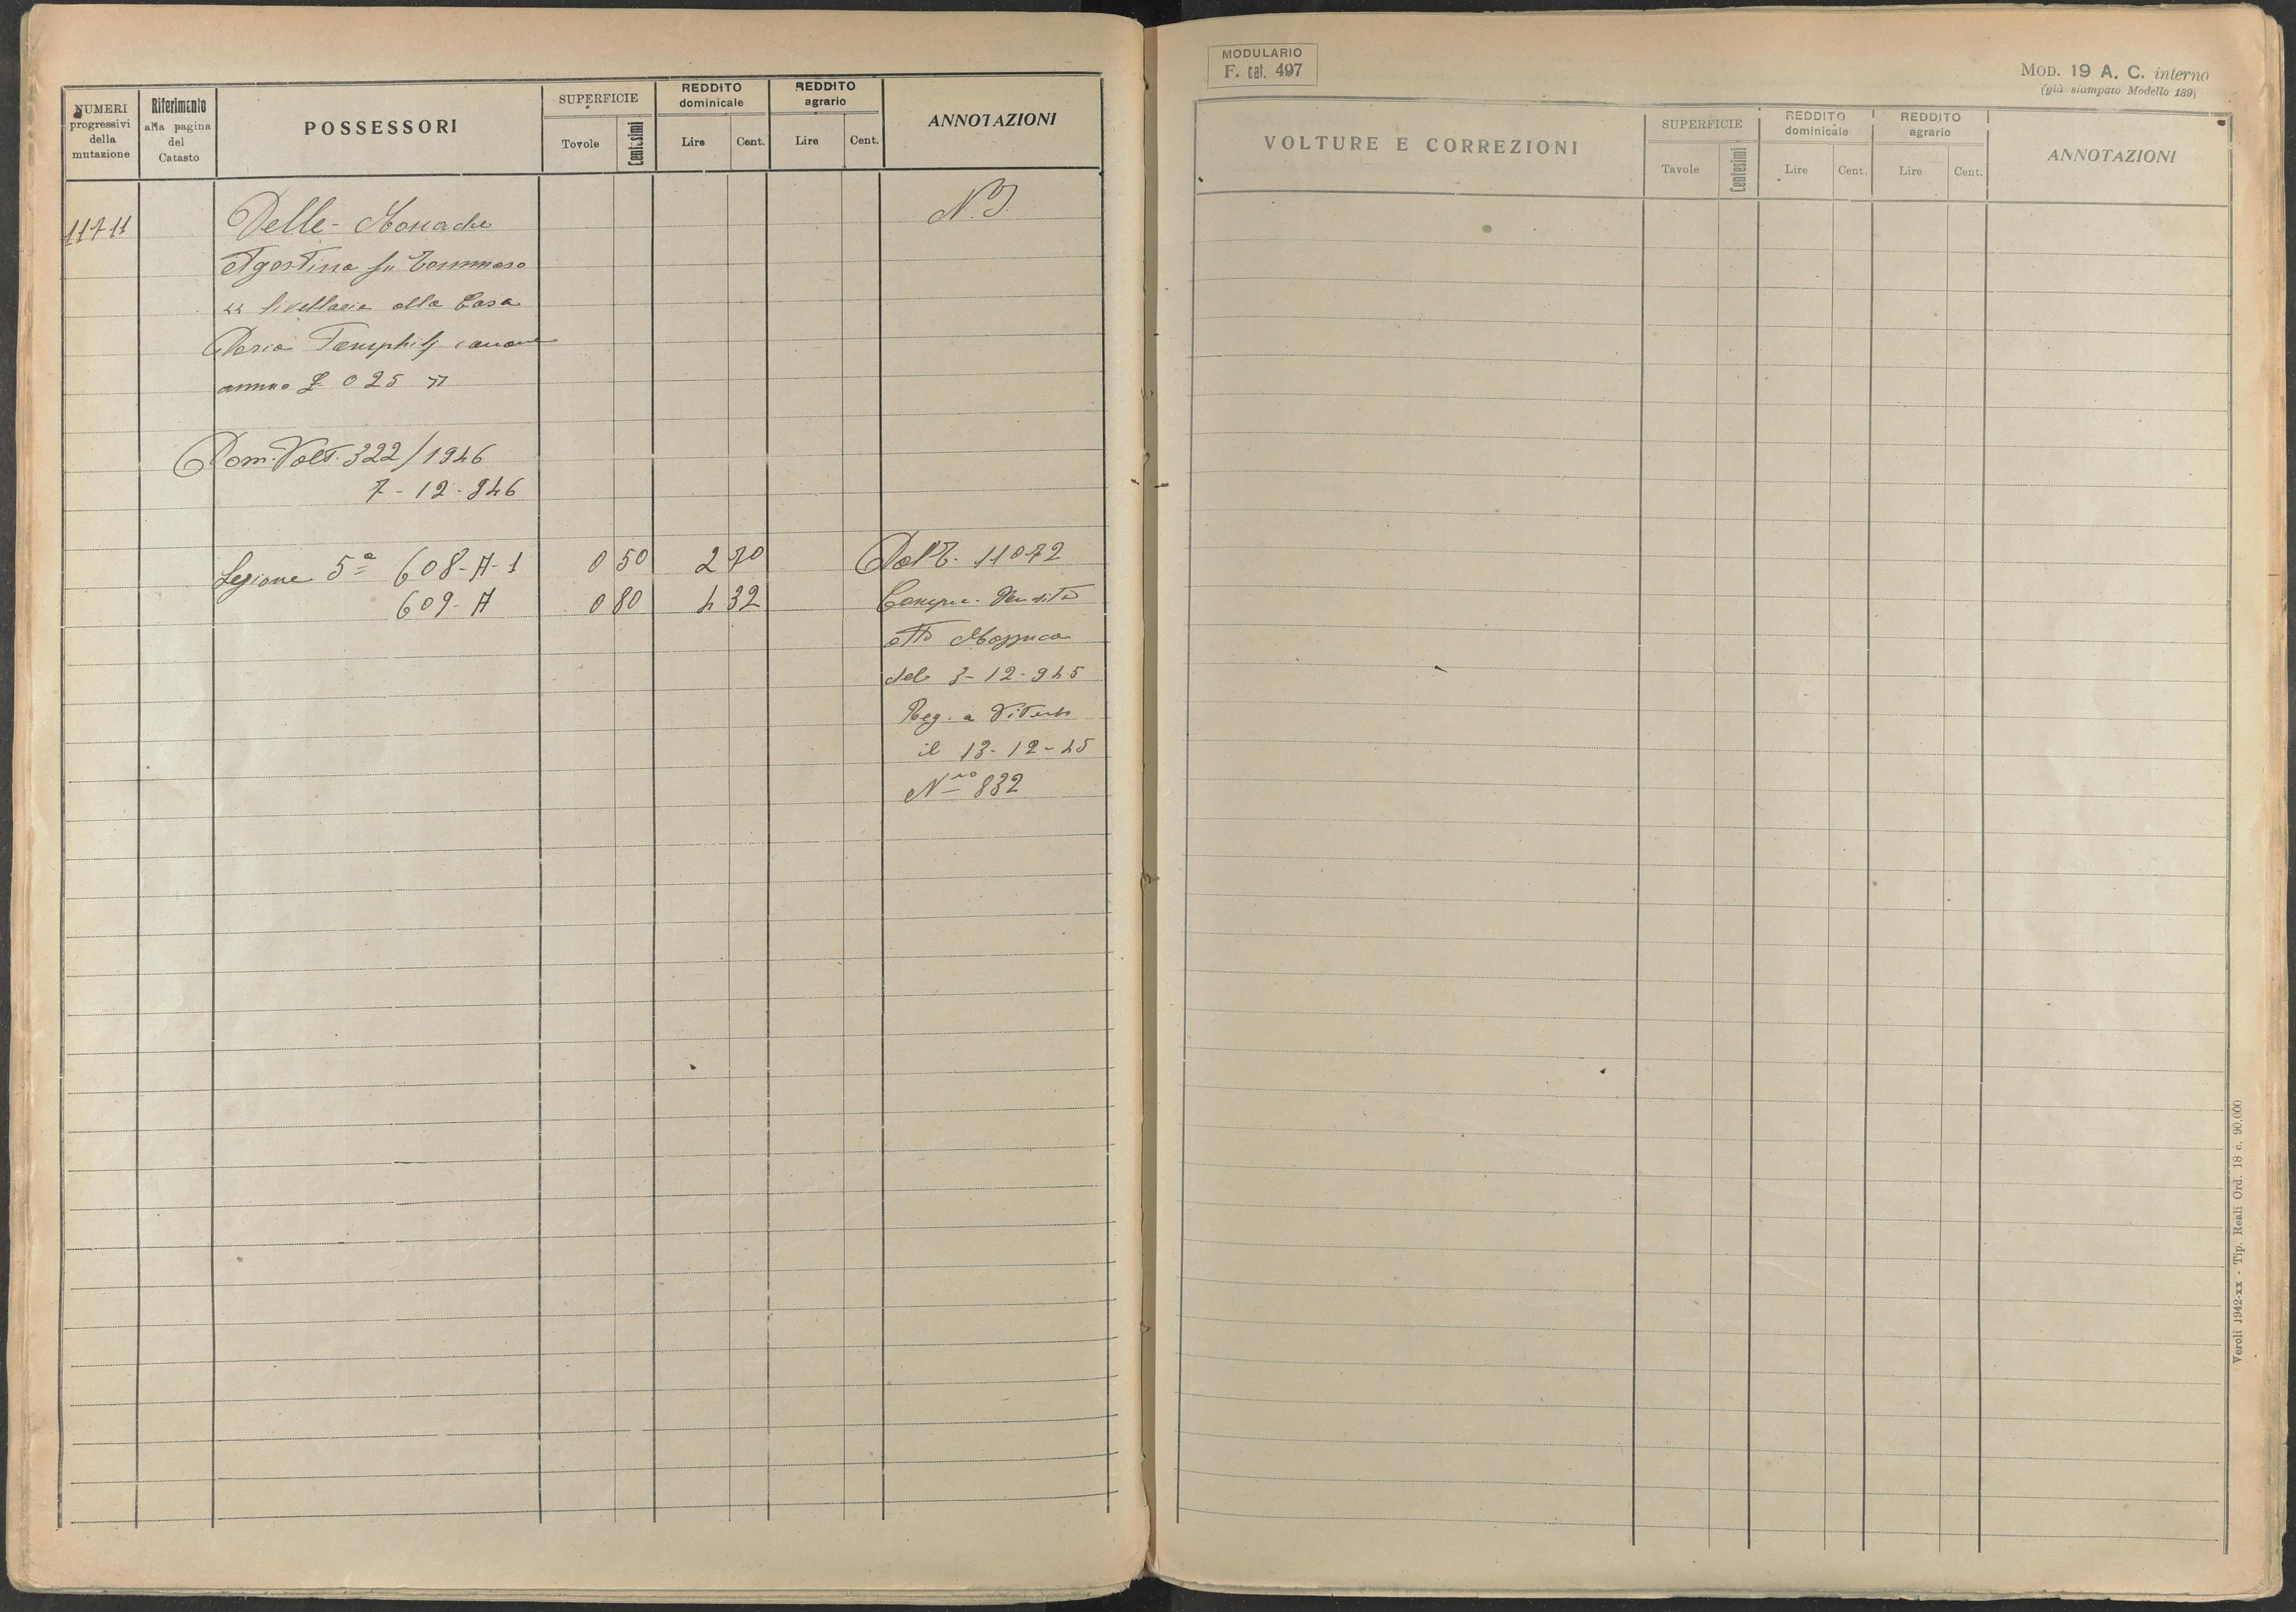 NUMERI
progressivi
della
mutazione
Riferimento
alla pagina
del
Catasto
POSSESSORI
SUPERFICIE
Tovole
Centesimi
REDDITO
dominicale
Lire
Cent.
REDDITO
agrario
Lire
Cent.
ANNOTAZIONI
11711
Delle-Monache
Agostina fu Tommaso
« livellaria alla Casa
Doria Pamphilj canone
annuo £ 025 »
Dom. Volt. 322/1946
7-12-946
Legione 5ª 608-A-1 0 50 2 70
609-A 0 80 4 32
N.I.
Volt. 11072
Compra-Vendita
atto
del 3-12-945
Reg. a Viterbo
il 13-12-45
Nro 832
MODULARIO
F. cat. 497
MOD. 19 A. C. interno
(già stampato Modello 189)
VOLTURE E CORREZIONI
SUPERFICIE
Tavole
Centesimi
REDDITO
dominicale
Lire
Cent.
REDDITO
agrario
Lire
Cent.
ANNOTAZIONI
Veroli 1942-xx - Tip. Reali Ord. 18 c. 90.000